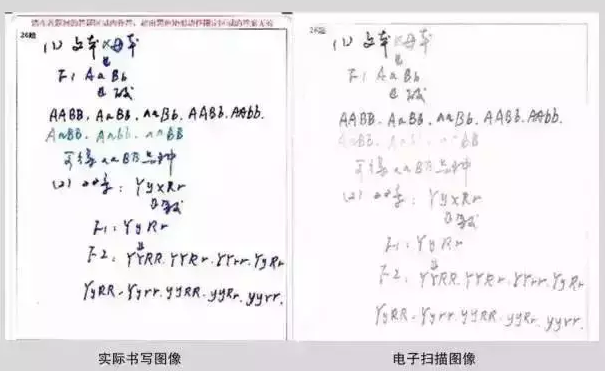 请在各题目的答题区域内作答，超出黑色矩形边框限定区域的答案无效
26题
(1) 父本×母本
↓
F1 AaBb
AABB. AaBB. aaBb. AABb. AAbb.
AaBB. Aabb. aaBB
可得aaBB品种
(2) YyxRr
F1: YyRr
F2: YYRR. YYRr. YYrr. YyRr
YyRR. Yyrr. yyRR. yyRr. yyrr.
实际书写图像
26题
(1) 父本×母本
F1 AaBb
AABB. AaBB. aaBb. AABb. AAbb.
AaBB. Aabb. aaBB
可得aaBB品种
(2) YyxRr
F1: YyRr
F2: YYRR. YYRr. YYrr. YyRr
YyRR. Yyrr. yyRR. yyRr. yyrr.
电子扫描图像